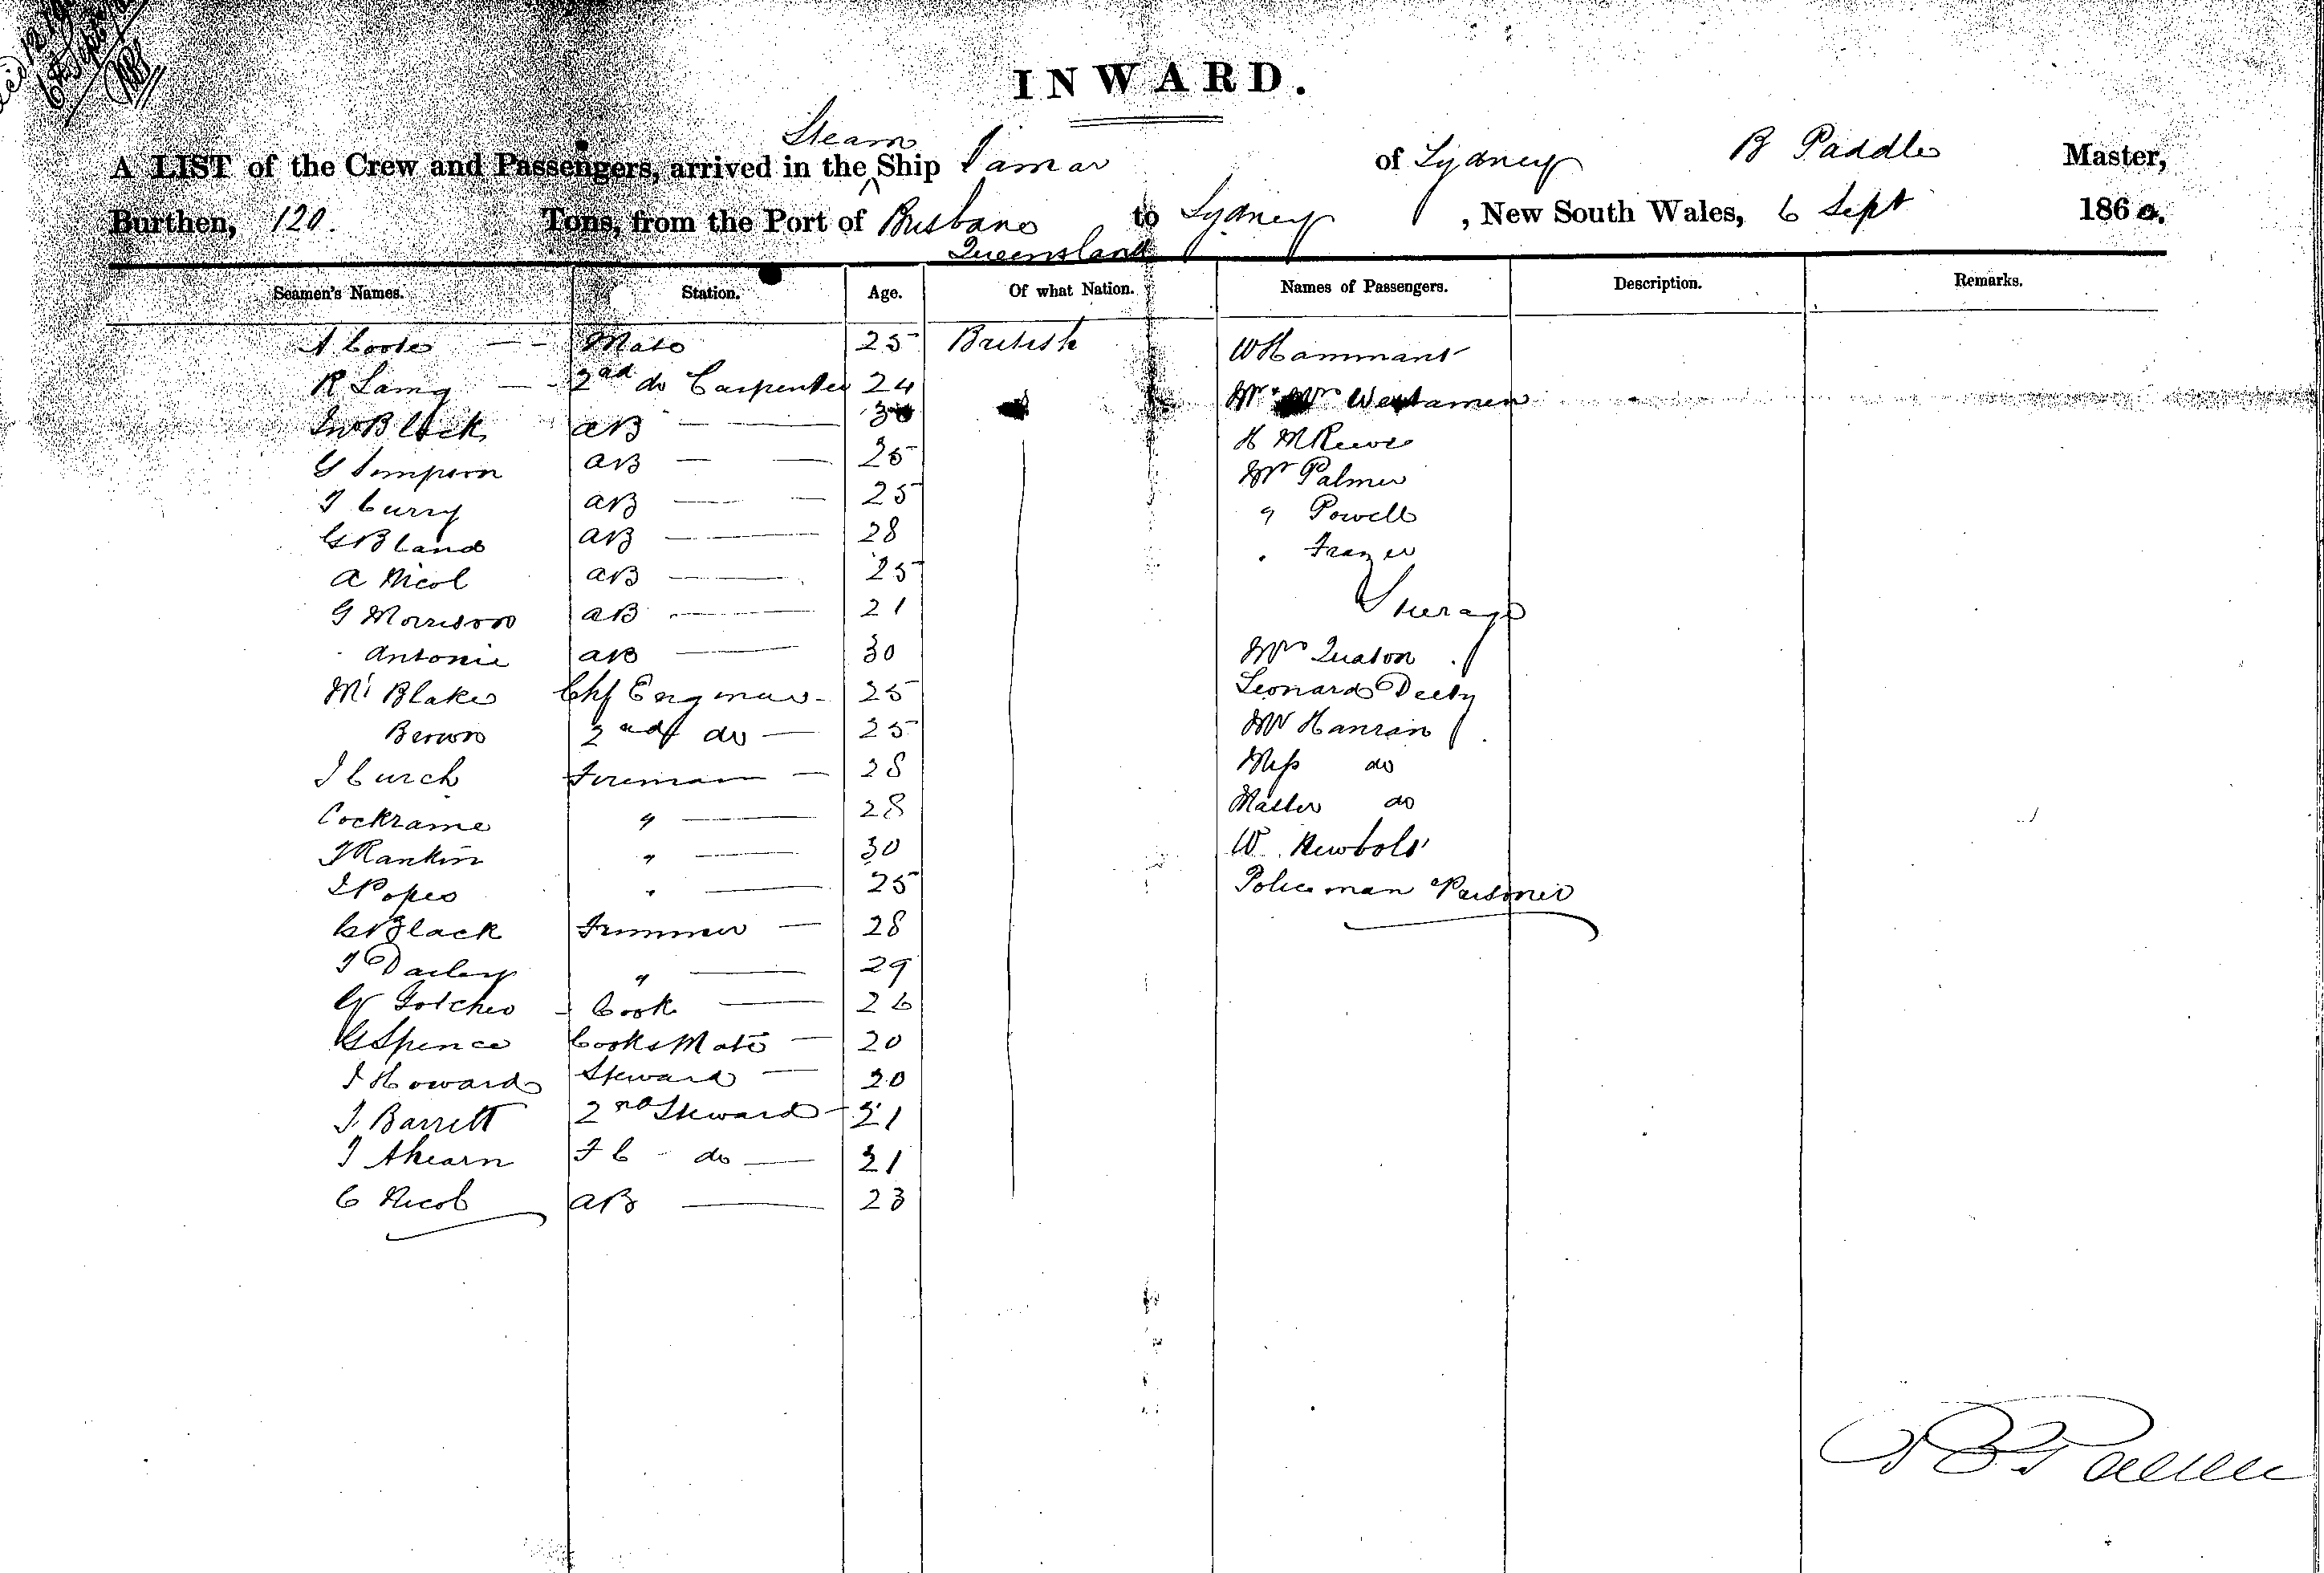 INWARD.
Steam
A LIST of the Crew and Passengers, arrived in the ^ Ship Tamar of Sydney B Paddle Master,
Burthen, 120. Tons, from the Port of Brisbane to Sydney, New South Wales, 6 Sept 1860.
Queensland
Seamen's Names. Station. Age. Of what Nation. Names of Passengers. Description. Remarks.
A Coote Mate 25 British W Hammant
R Laing 2nd do Carpenter 24 Mr Mrs Westamen
Jno Black AB 30 H M Reeve
G Simpson AB 25 Mr Palmer
T Curry AB 25 " Powell
G Bland AB 28 " Frazer
A Nicol AB 25 Steerage
G Morrison AB 21
Antonie AB 30 Mrs Quaton
Mr Blake Chf Engineer 25 Leonard Deely
Brown 2nd do 25 Mrs Hanran
J Curch Fireman 28 Miss do
Cockrame " 28 Master do
J Rankin " 30 W Newbold
J Pope " 25 Policeman Prisoner
C Black Trimmer 28
T Darley " 29
G Gotcher Cook 26
G Spence Cooks Mate 20
J Howard Steward 20
J. Barrett 2nd Steward 21
J Ahearn F C do 21
C Nicol AB 23